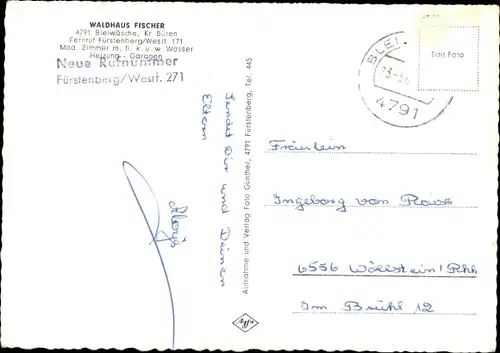 WALDHAUS FISCHER
4791 Bleiwäsche, Kr. Büren
Fernruf Fürstenberg/Westf. 171
Mod. Zimmer m. fl. k. u. w. Wasser
Heizung - Garagen
Neue Rufnummer
Fürstenberg/Westf. 271
sendet Dir und Deinen
Eltern
Alois
Aufnahme und Verlag Foto Günther, 4791 Fürstenberg, Tel. 445
4791
Echt Foto
Fräulein
Ingeborg von
6556 Wöllstein/Rhh
Im Brühl 12